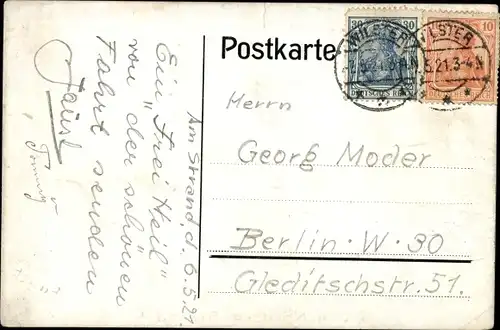 Postkarte
30 30
DEUTSCHES REICH
10
WILSTER
WILSTER
5.21.3-4N
Am Strand, d. 6.5.21.
Ein "Frei Heil"
von der schönen
Fahrt senden
Herrn
Georg Moder
Berlin · W · 30
Gleditschstr. 51.